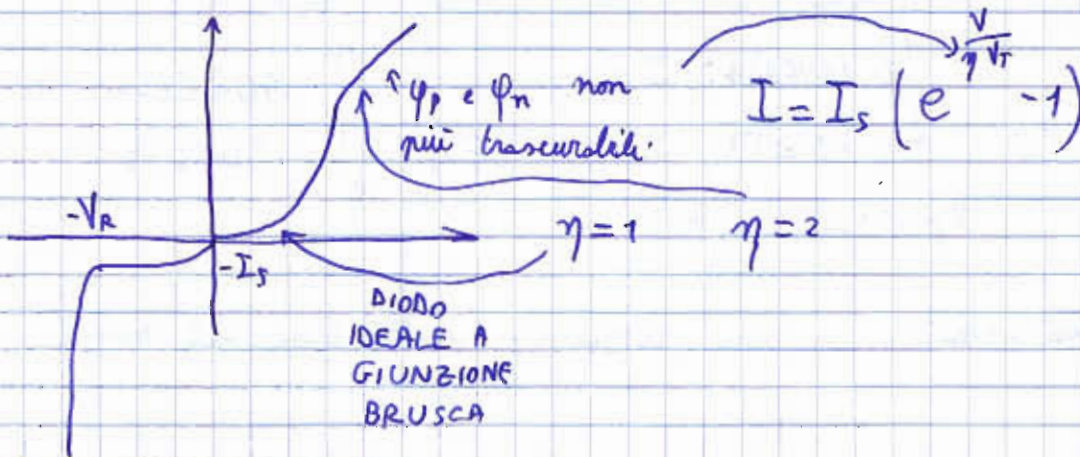 φp e φn non
più trascurabili.
I = Is (e^(V/ηVT) -1)
-VR
-Is
η=1
η=2
DIODO
IDEALE A
GIUNZIONE
BRUSCA